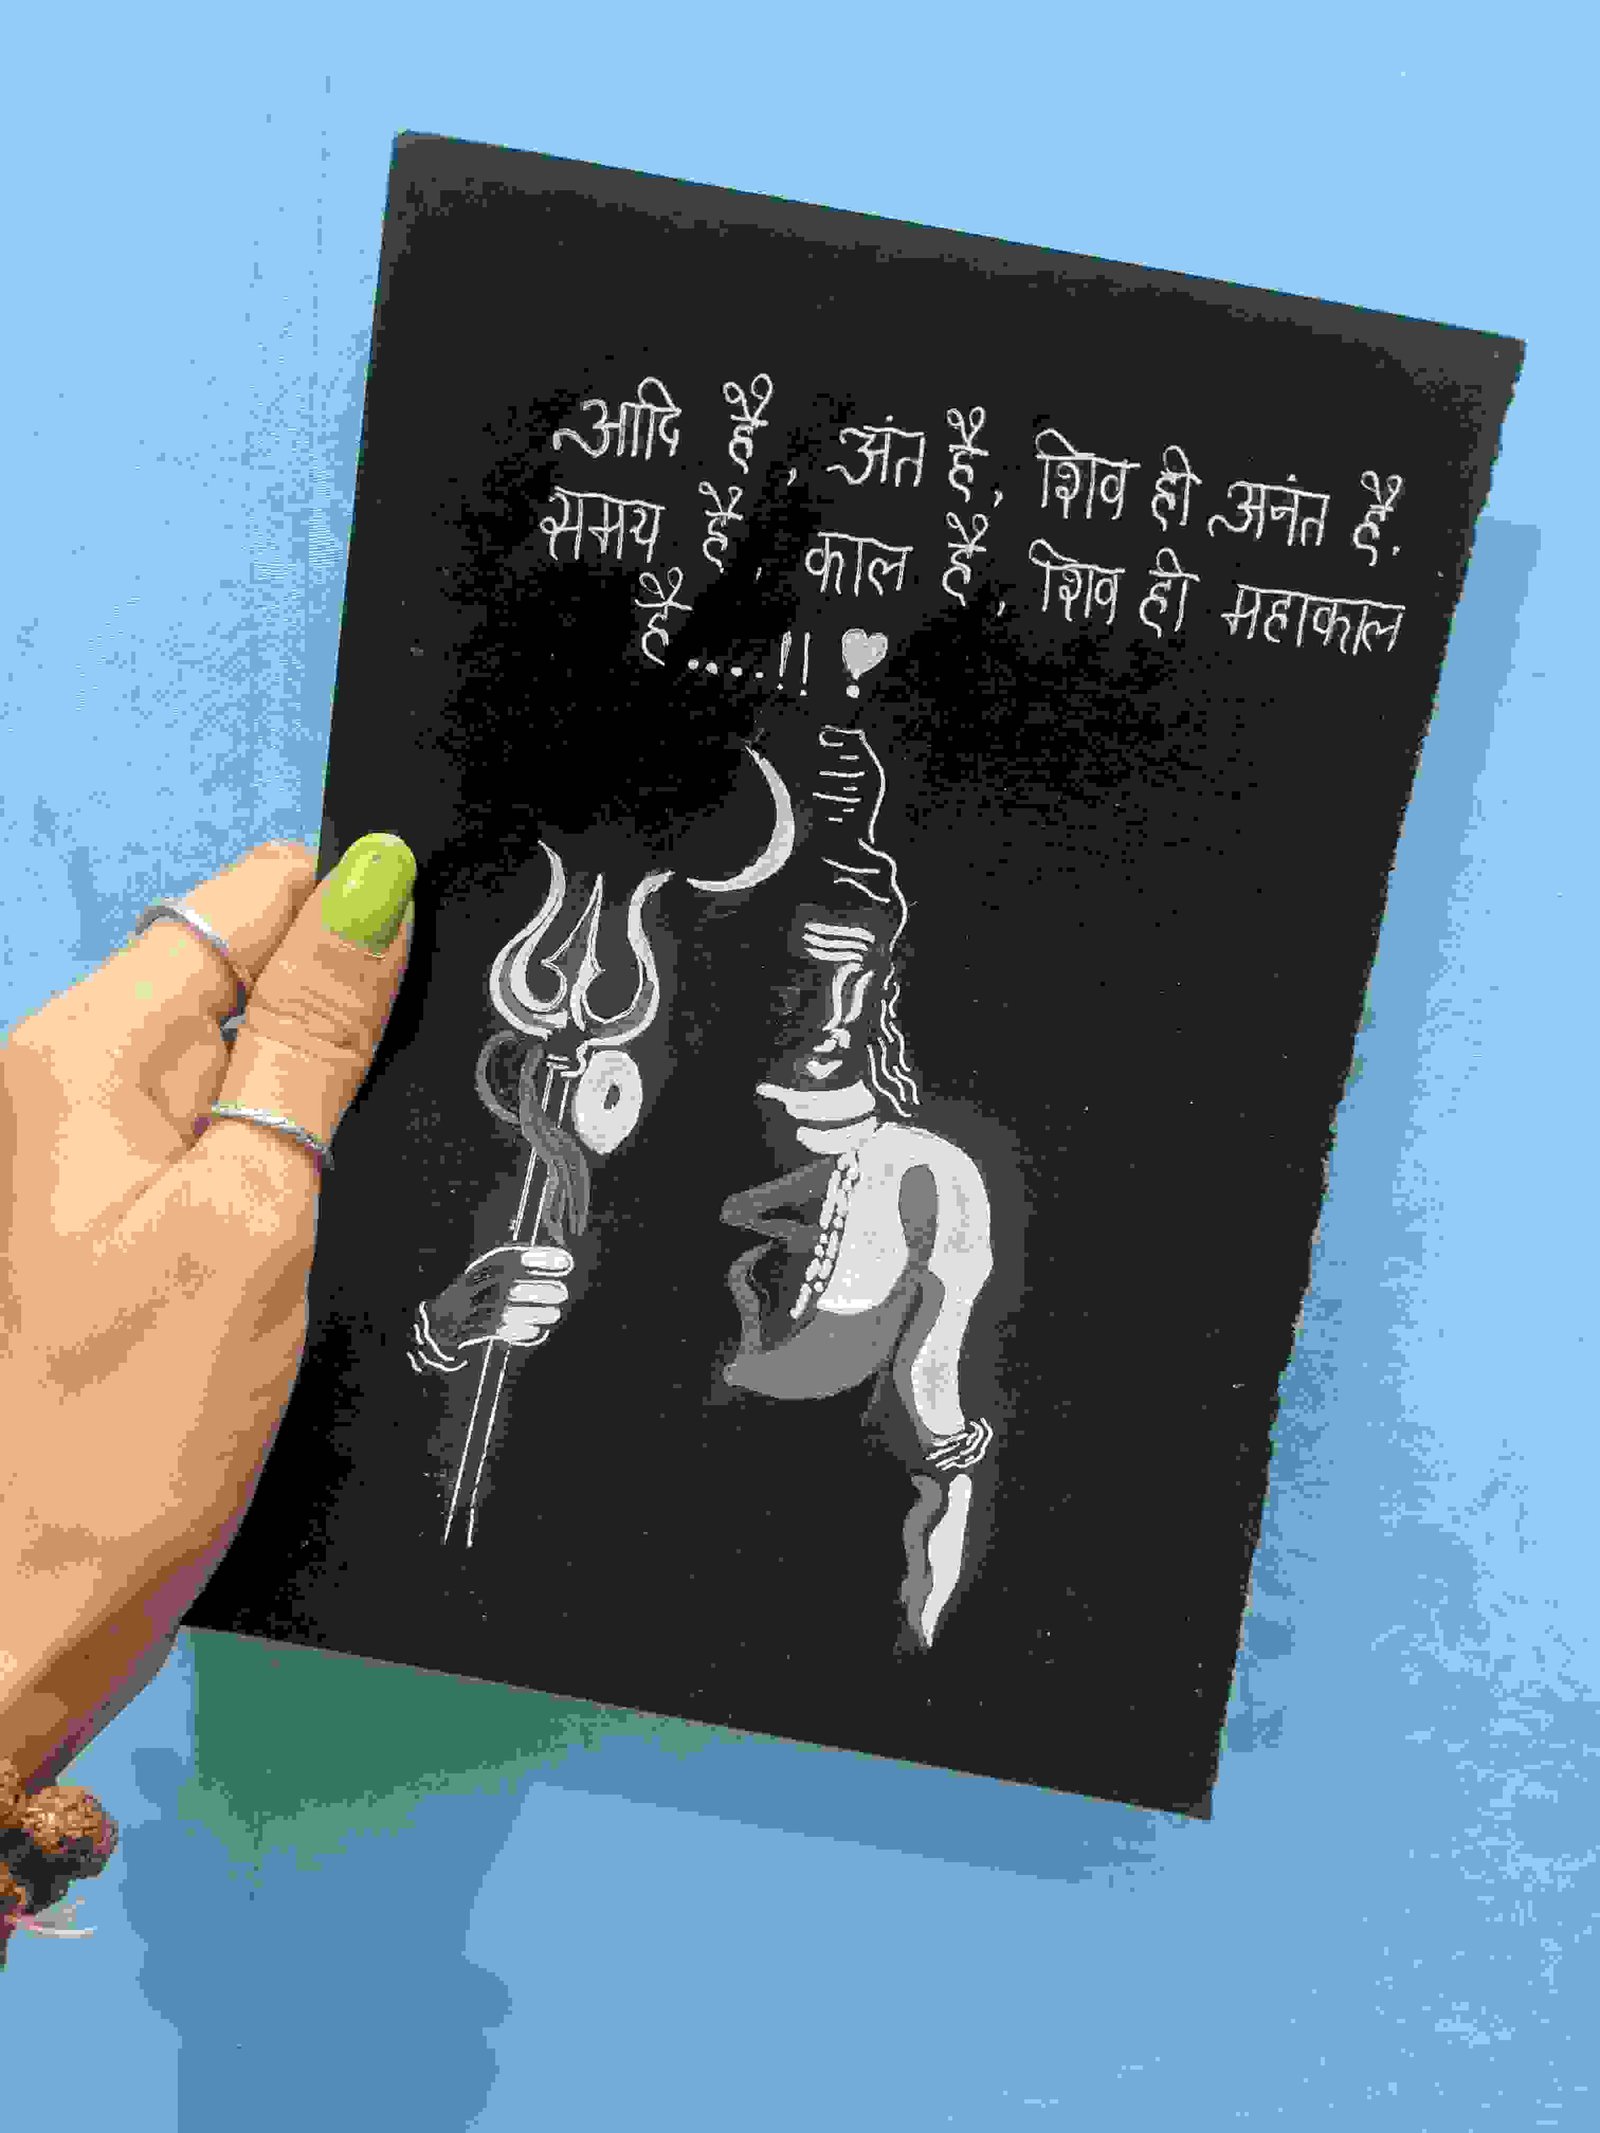 आदि है, अंत है, शिव ही अनंत है.
समय है, काल है, शिव ही महाकाल
है....!! ❣